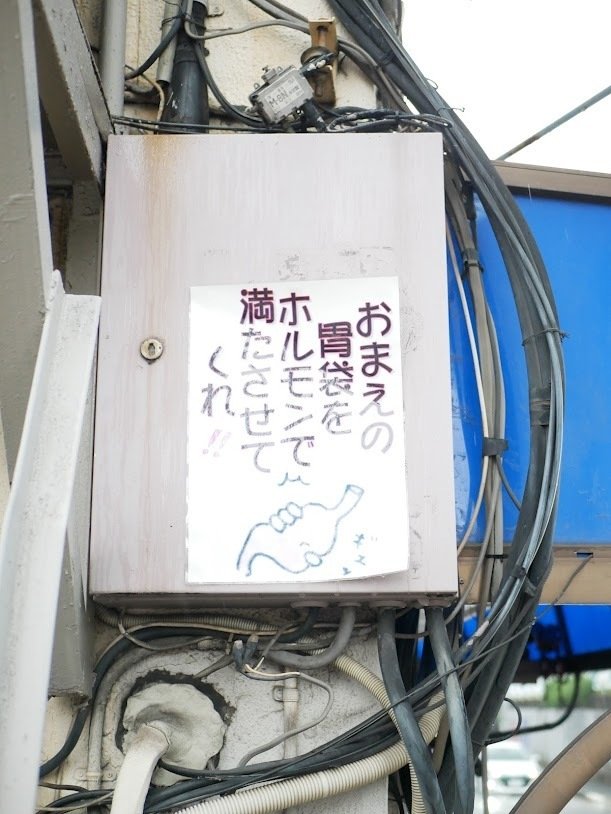 おまえの
胃袋を
ホルモンで
満たさせて
くれ!!